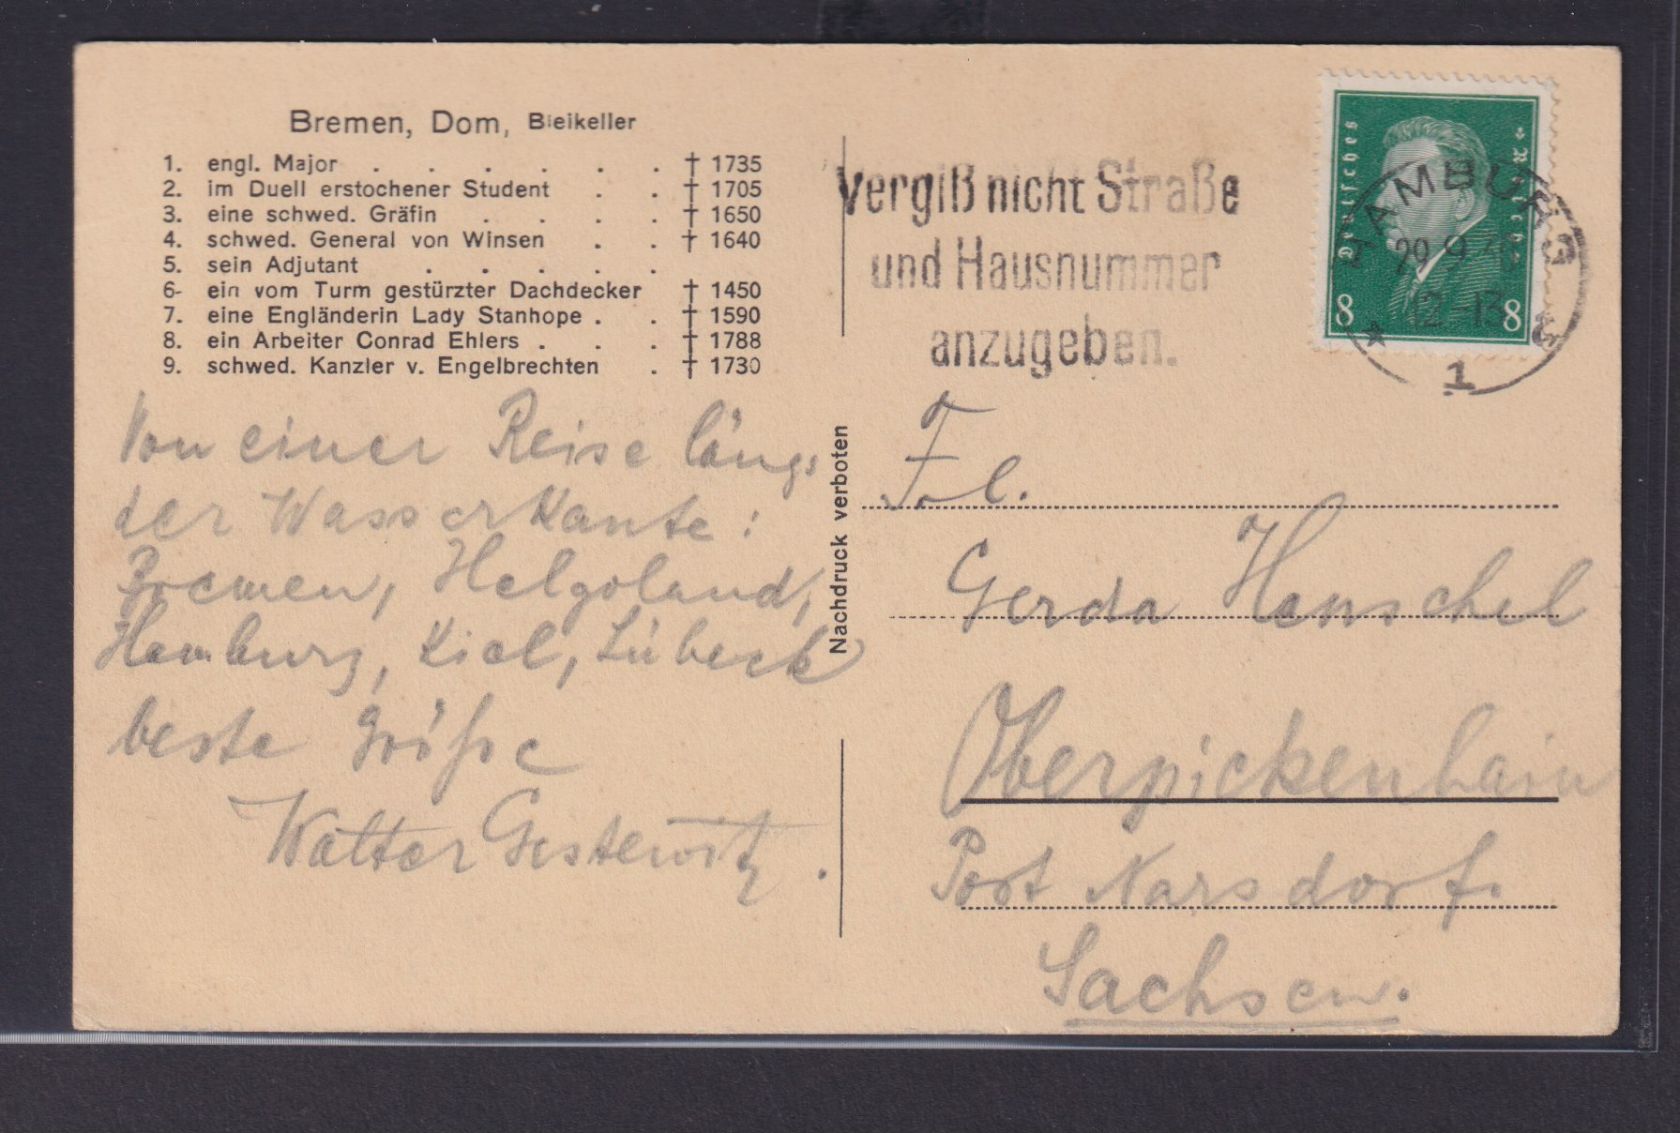 Bremen, Dom, Bleikeller
1. engl. Major . . . . . . † 1735
2. im Duell erstochener Student . . † 1705
3. eine schwed. Gräfin . . . . † 1650
4. schwed. General von Winsen . . † 1640
5. sein Adjutant . . . . .
6- ein vom Turm gestürzter Dachdecker † 1450
7. eine Engländerin Lady Stanhope . . † 1590
8. ein Arbeiter Conrad Ehlers . . . † 1788
9. schwed. Kanzler v. Engelbrechten . † 1730
Von einer Reise längs
der Wasserkante:
Bremen, Helgoland,
Hamburg, Kiel, Lübeck
beste Grüße
Walter Gestewitz.
Nachdruck verboten
Vergiß nicht Straße
und Hausnummer
anzugeben.
Deutsches Reich
8 8
HAMBURG
29.9.
12-13
* 1
Frl.
Gerda Henschel
Oberpickenhain
Post Narsdorf.
Sachsen.